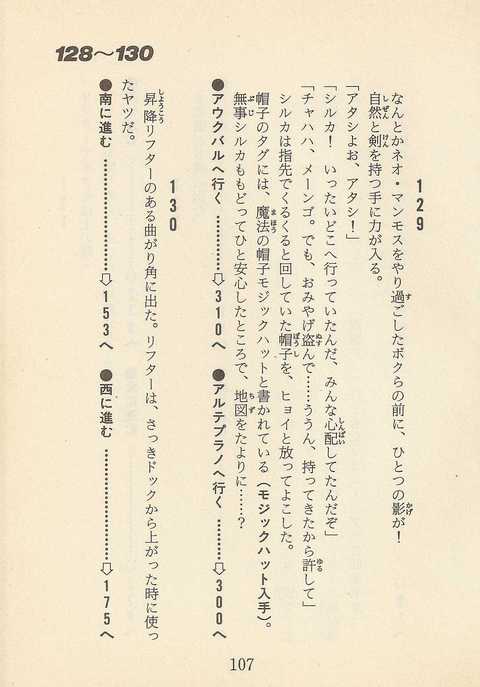 128〜130
129
なんとかネオ・マンモスをやり過ごしたボクらの前に、ひとつの影が!
自然と剣を持つ手に力が入る。
「アタシよお、アタシ!」
「シルカ! いったいどこへ行っていたんだ、みんな心配してたんだぞ」
「チャハハ、メーンゴ。でも、おみやげ盗んで……ううん、持ってきたから許して」
シルカは指先でくるくると回していた帽子を、ヒョイと放ってよこした。
帽子のタグには、魔法の帽子モジックハットと書かれている(モジックハット入手)。
無事シルカももどってひと安心したところで、地図をたよりに……?
●アウクバルへ行く…………⇨310へ ●アルテプラノへ行く…………⇨300へ
130
昇降リフターのある曲がり角に出た。リフターは、さっきドックから上がった時に使っ
たヤツだ。
●南に進む…………………⇨153へ ●西に進む…………………⇨175へ
107